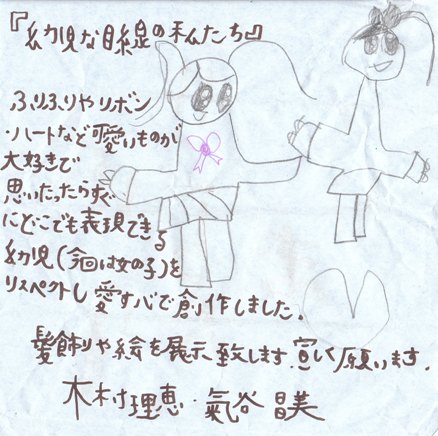 『幼児な目線の私たち』
ふりふりやリボン
・ハートなど可愛いものが
大好きで
思いたったらすぐ
にどこでも表現できる
幼児(今回は女の子)を
リスペクトし愛す心で創作しました。
髪飾りや絵を展示致します。宜しく願います。
木村理恵・氣谷昌美